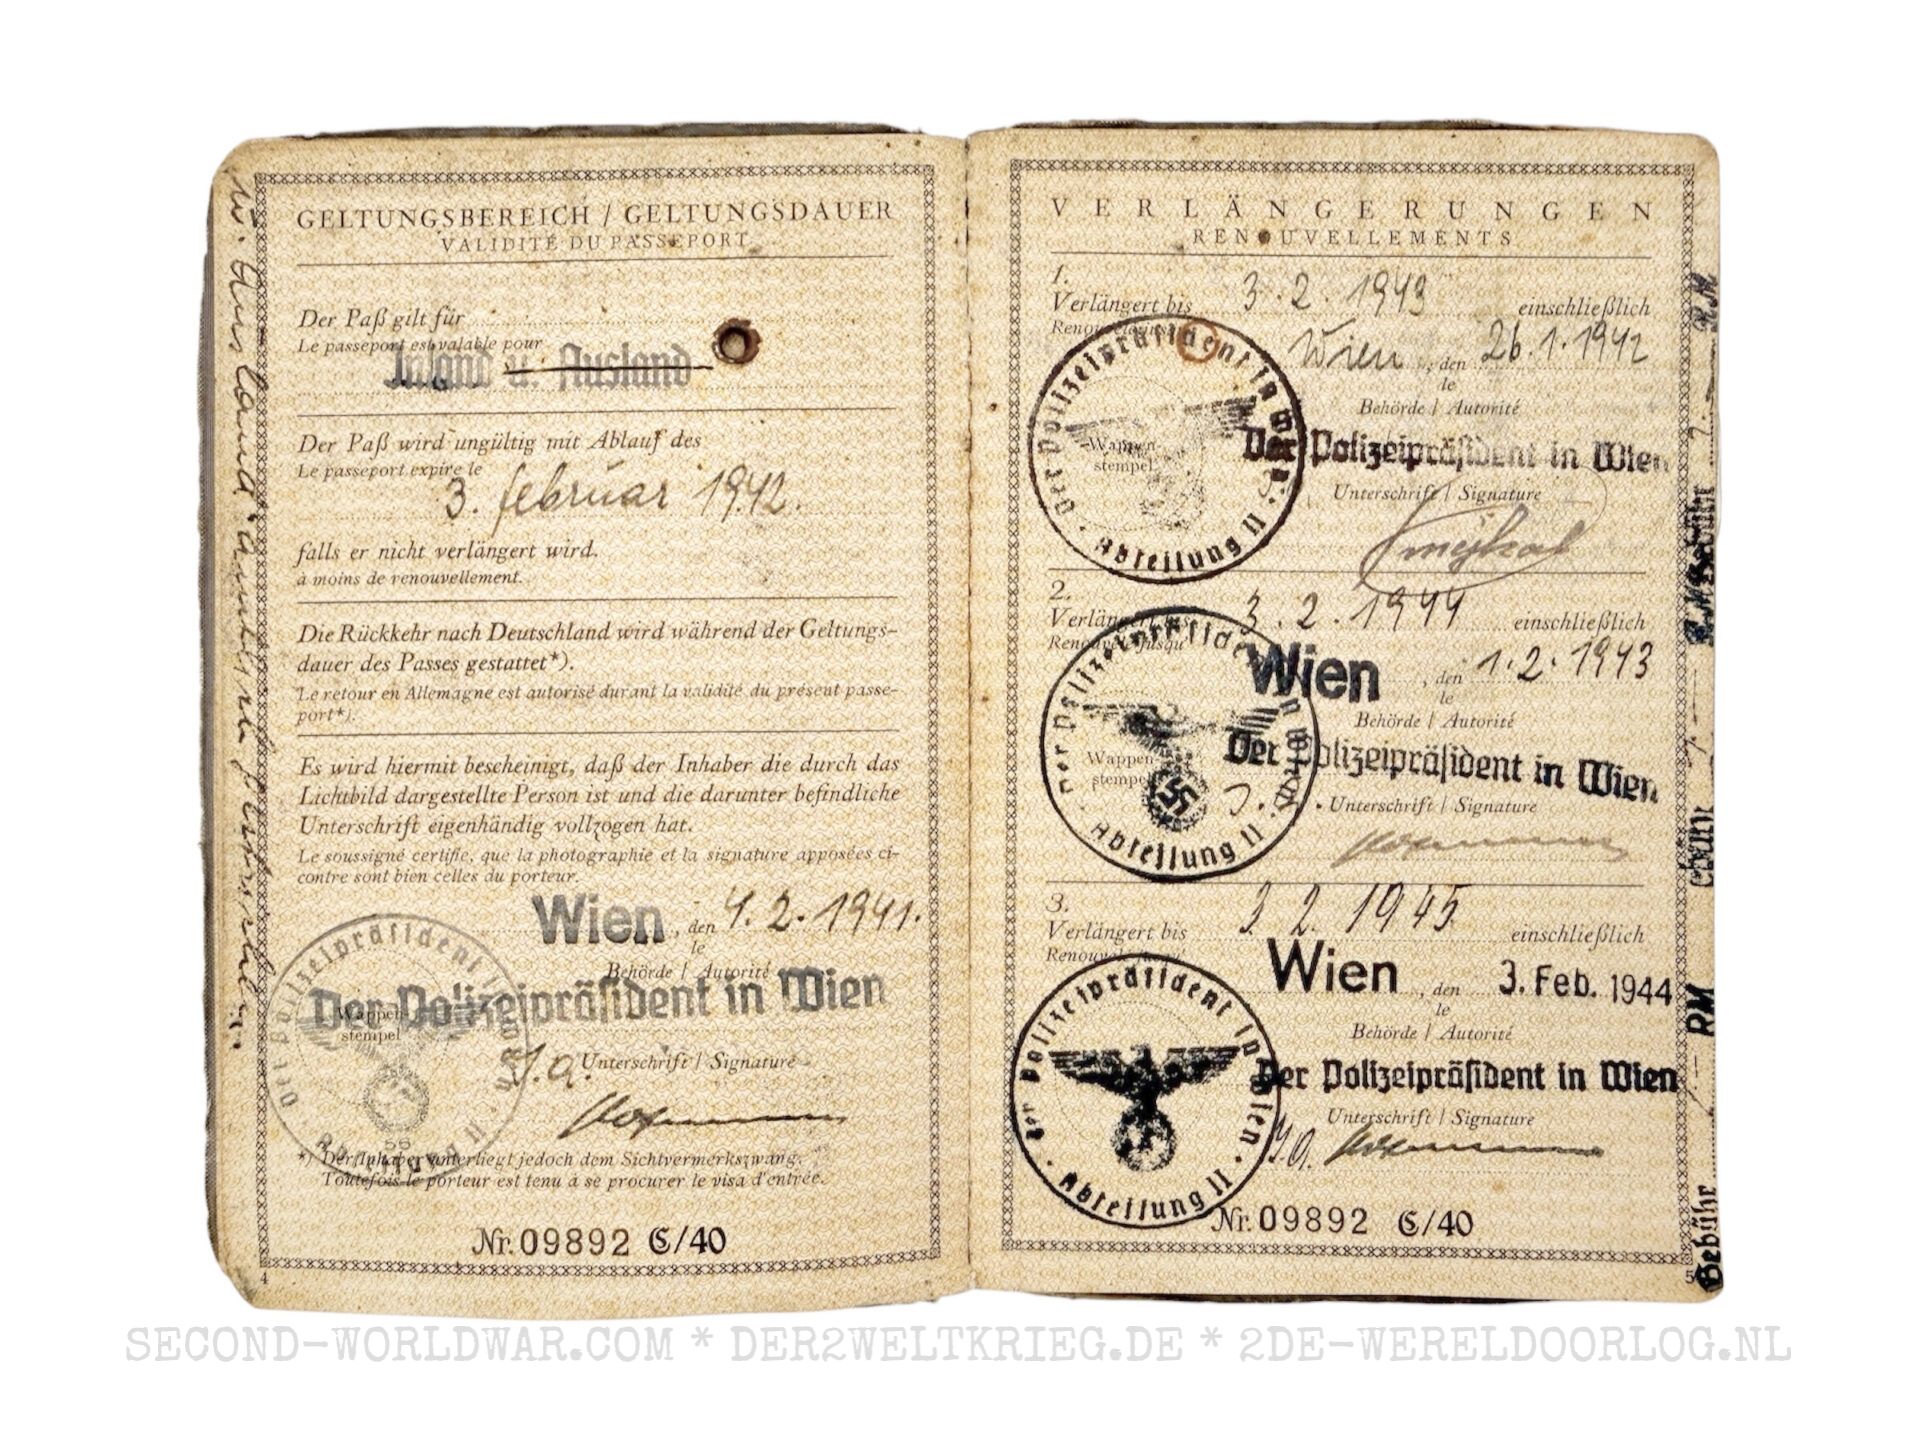 GELTUNGSBEREICH / GELTUNGSDAUER
VALIDITÉ DU PASSEPORT
Der Paß gilt für
Le passeport est valable pour
Inland u. Ausland
Der Paß wird ungültig mit Ablauf des
Le passeport expire le
3. Februar 1942.
falls er nicht verlängert wird.
à moins de renouvellement.
Die Rückkehr nach Deutschland wird während der Geltungs-
dauer des Passes gestattet*).
Le retour en Allemagne est autorisé durant la validité du présent passe-
port*).
Es wird hiermit bescheinigt, daß der Inhaber die durch das
Lichtbild dargestellte Person ist und die darunter befindliche
Unterschrift eigenhändig vollzogen hat.
Le soussigné certifie, que la photographie et la signature apposées ci-
contre sont bien celles du porteur.
Wien, den 4.2.1941.
le
Behörde / Autorité
Der Polizeipräsident in Wien
Wappen-
stempel
Der Polizeipräsident in Wien · Abteilung II ·
56
I.A. Unterschrift / Signature
*) Der Inhaber unterliegt jedoch dem Sichtvermerkszwang.
Toutefois le porteur est tenu à se procurer le visa d'entrée.
Nr. 09892 C/40
4
VERLÄNGERUNGEN
RENOUVELLEMENTS
1.
Verlängert bis 3.2.1943 einschließlich
Wien, den 26.1.1942
le
Behörde / Autorité
Der Polizeipräsident in Wien
Wappen-
stempel
Der Polizeipräsident in Wien · Abteilung II ·
Unterschrift / Signature
2.
Verlängert bis 3.2.1944 einschließlich
Renouvelé jusqu'
Wien, den 1.2.1943
le
Behörde / Autorité
Der Polizeipräsident in Wien
Wappen-
stempel
Der Polizeipräsident in Wien · Abteilung II ·
Unterschrift / Signature
3.
Verlängert bis 3.2.1945 einschließlich
Wien, den 3. Feb. 1944
le
Behörde / Autorité
Der Polizeipräsident in Wien
Der Polizeipräsident in Wien · Abteilung II ·
Unterschrift / Signature
I.A.
Nr. 09892 C/40
5
Gebühr RM
Gebühr
SECOND-WORLDWAR.COM * DER2WELTKRIEG.DE * 2DE-WERELDOORLOG.NL